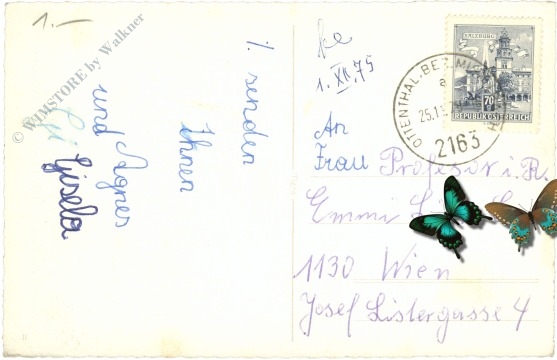 1.-
© WIMSTORE by Walkner
1. senden
Ihnen
und Agnes
Gisela
1. XII. 75
SALZBURG
70
REPUBLIK ÖSTERREICH
OTTENTHAL, BEZ. MI
a
25.11
2163
An
Frau Professor i. R.
Emmi
1130 Wien
Josef Listergasse 4